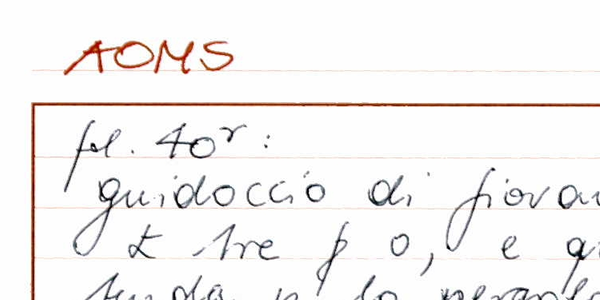 AOMS
fol. 40r:
guidoccio di giovan
£ tre p 0, e q